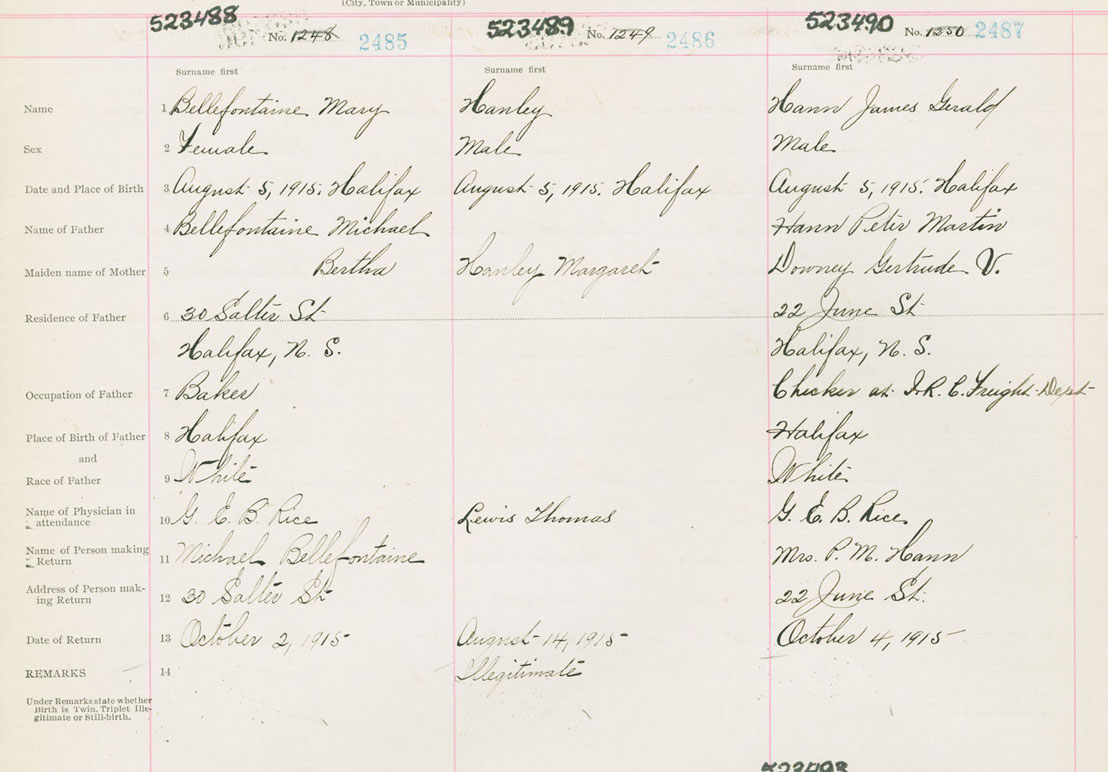 (City, Town or Municipality)
523488 No. 1248 2485 523489 No. 1249 2486 523490 No. 1250 2487
Surname first Surname first Surname first
Name 1 Bellefontaine Mary Hanley Hann James Gerald
Sex 2 Female Male Male
Date and Place of Birth 3 August 5, 1915. Halifax August 5, 1915. Halifax August 5, 1915. Halifax
Name of Father 4 Bellefontaine Michael Hann Peter Martin
Maiden name of Mother 5 Bertha Hanley Margaret Downey Gertrude V.
Residence of Father 6 30 Salter St 22 June St
Halifax, N. S. Halifax, N. S.
Occupation of Father 7 Baker Checker at I.R.C. Freight Dept
Place of Birth of Father 8 Halifax Halifax
and
Race of Father 9 White White
Name of Physician in attendance 10 G. E. B. Rice Lewis Thomas G. E. B. Rice
Name of Person making Return 11 Michael Bellefontaine Mrs. P. M. Hann
Address of Person mak-ing Return 12 30 Salter St 22 June St.
Date of Return 13 October 2, 1915 August 14, 1915 October 4, 1915
REMARKS 14 Illegitimate
Under Remarks state whether
Birth is Twin, Triplet Ille-
gitimate or Still-birth.
523493